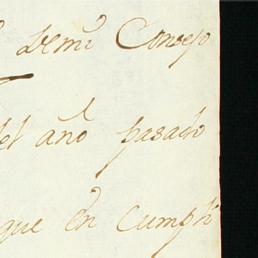 demi Consejo
del año pasado
que en cumpli